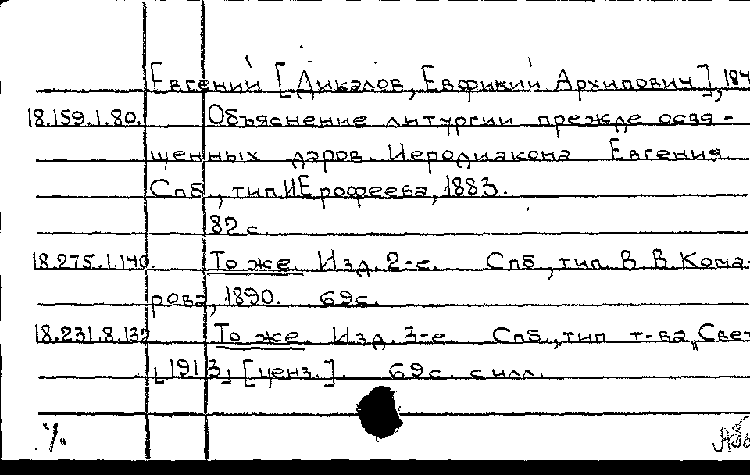 Евгений [Дикалов, Евфимий Архипович], 184
18.159.1.80. Объяснение литургии прежде освя-
щенных даров. Иеродиакона Евгения.
Спб., тип. И Ерофеева, 1883.
82 с.
18.275.1.140. То же. Изд. 2-е. Спб., тип. В. В. Кома-
рова, 1890. 69с.
18.231.8.132 То же. Изд. 3-е Спб., тип т-ва „Свет
[1913] [ценз.]. 69с. с илл.